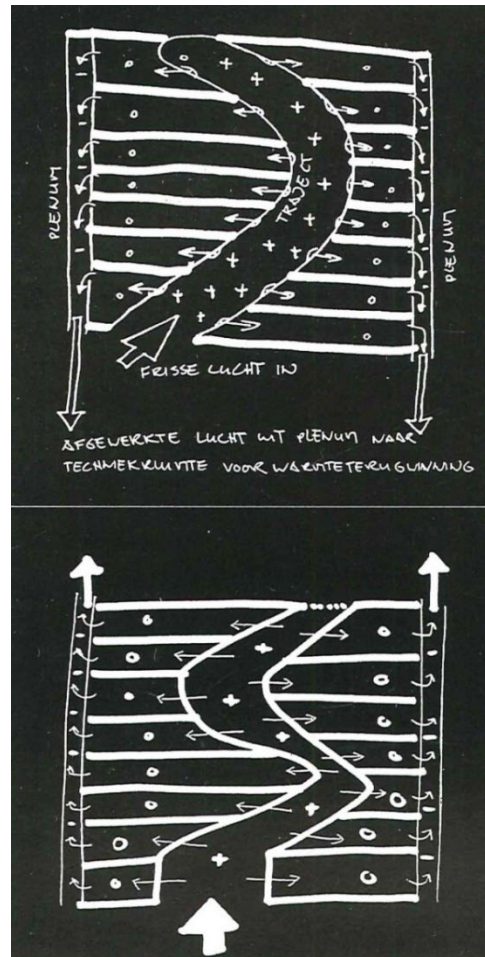 PLENUM
TRAJECT
PLENUM
FRISSE LUCHT IN
AFGEWERKTE LUCHT UIT PLENUM NAAR
TECHNIEKRUIMTE VOOR WARMTETERUGWINNING